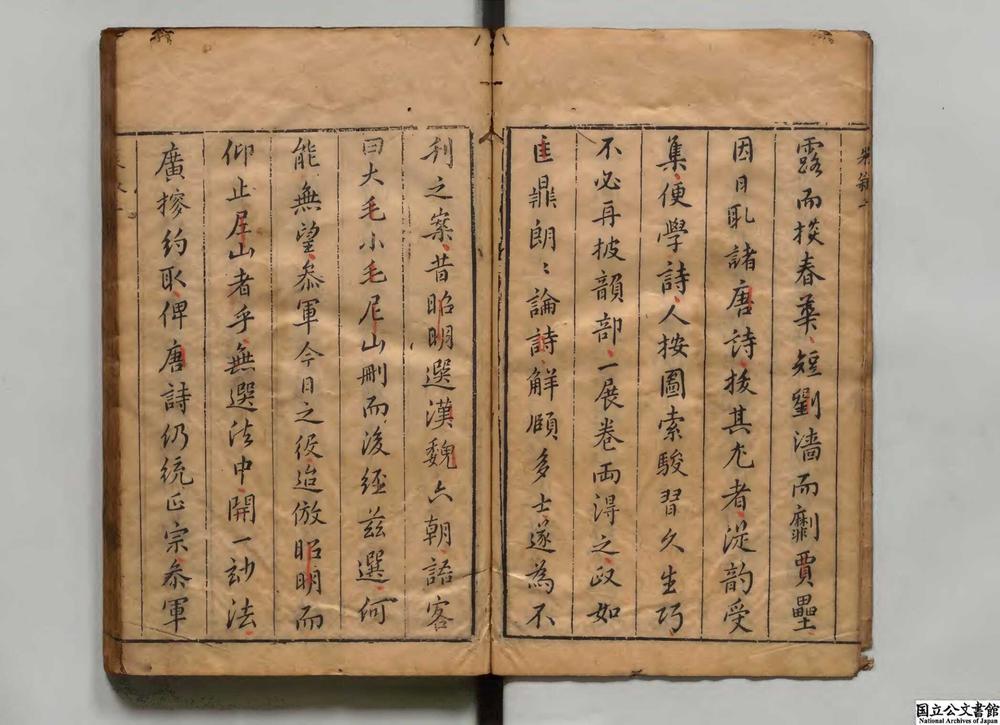 露而掞春蕤短劉濇而劘賈壘
因日取諸唐詩掞其尤者從韵受
集便學詩人按圖索駿習久生巧
不必再披韻部一展卷而得之政如
匡鼎朗〻論詩解頤多士遂為不
刋之案昔昭明選漢魏六朝語客
曰大毛小毛尼山刪而後經茲選何
能無望參軍今日之役迨倣昭明而
仰止尼山者乎無選法中開一妙法
廣摉約取俾唐詩仍統正宗參軍
国立公文書館
National Archives of Japan